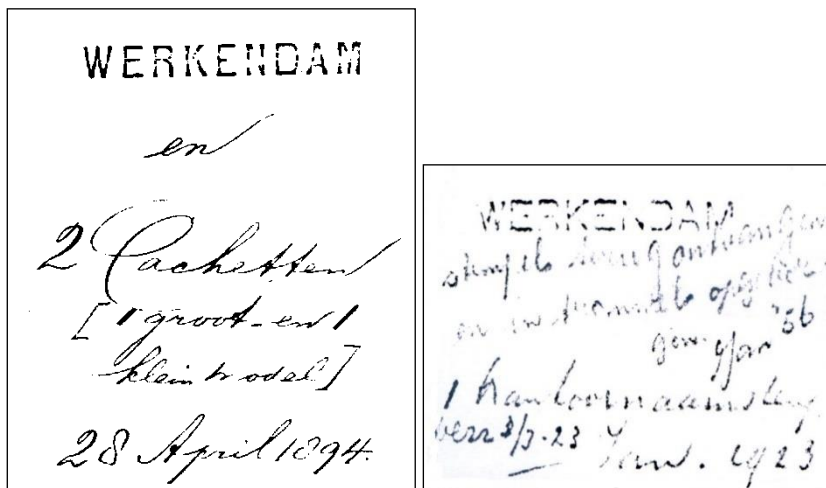 WERKENDAM
en
2 Cachetten
[1 groot en 1
klein model]
28 April 1894.
WERKENDAM
stempels terug ontvangen
en in trommel opgeborgen
Jan '56
1 kantoornaamstempel
verz 3/3-23 Jan. 1923